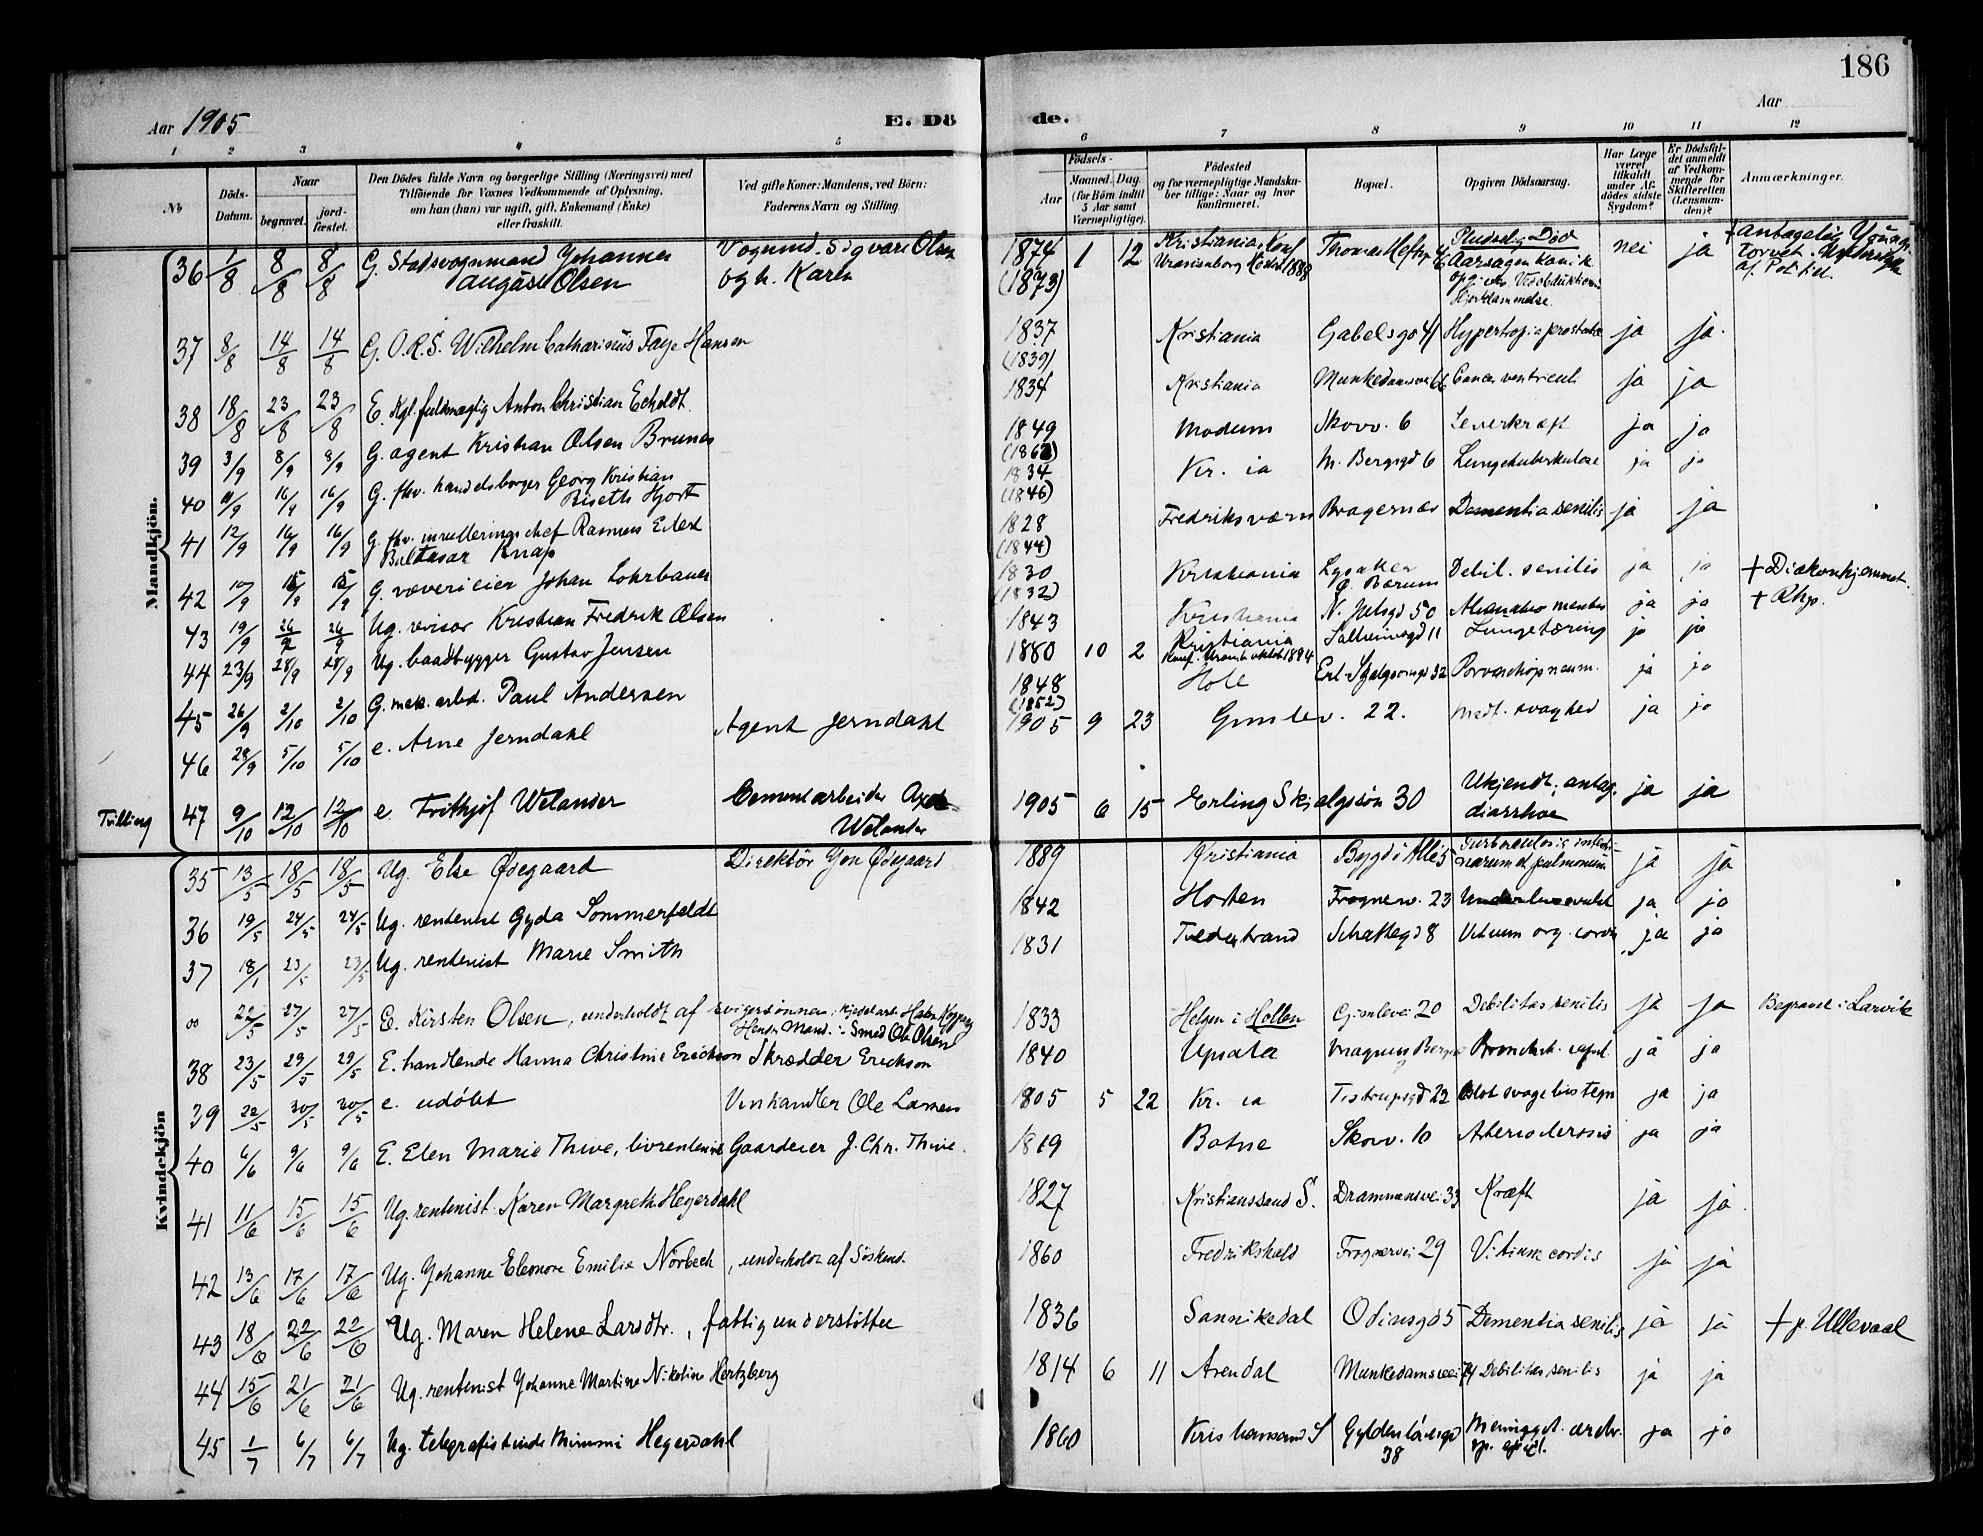 186
Aar 1905
E. Dö
de.
Aar
1 2 3 4 5 6 7 8 9 10 11 12
No
Döds-Datum.
Naar
begravet.
jord-fæstet.
Den Dödes fulde Navn og borgerlige Stilling (Næringsvei) med
Tilföiende for Voxnes Vedkommende af Oplysning,
om han (hun) var ugift, gift, Enkemand (Enke)
eller fraskilt.
Ved gifte Koner: Mandens, ved Börn:
Faderens Navn og Stilling
Födsels-
Aar
Maaned. Dag.
(for Börn indtil
5 Aar samt
Værnepligtige).
Födested
og for værnepligtige Mandska-
ber tillige: Naar og hvor
konfirmeret.
Bopæl.
Opgiven Dödsaarsag.
Har Læge
været
tilkaldt
under Af-
dödes sidste
Sygdom?
Er Dödsfal-
det anmeldt
af Vedkom-
mende for
Skifteretten
(Lensman-
den)?
Anmærkninger.
Mandkjön.
36 1/8 8/8 8/8 G. Stadsvognmand Johannes Vognmd. Sigvart Olsen 1874 1 12 Kristiania Konf Pludselig Död nei ja
August Olsen og h. Karen (1873) Uranienborg 1888 Aarsagen kan ik
af Politiet.
37 8/8 14/8 14/8 G. O.R.S. Wilhelm Catharinus Faye Hansen 1837 Kristiania Gabelsgd 41 Hypertrofia prostatæ ja ja.
(1839)
38 18/8 23/8 23/8 E. Kgl. fuldmægtig Anton Christian Echoldt 1834 Kristiania Munkedamsvei Cancer ventriculi ja ja
39 3/9 8/9 8/9 G. agent Kristian Olsen Brunes 1849 Modum Skovv. 6 Leverkræft ja ja
40 16/9 16/9 G. fhv. handelsborger Georg Kristian 1834 Kr. ia M. Bergsgd 6 Lungetuberkulose ja ja
Hjort (1846)
41 12/9 16/9 16/9 G. fhv. chef Rasmus 1828 Fredriksværn Bragernæs Dementia senilis ja ja
Baltasar Knap (1844)
42 10/9 15/9 15/9 G. væverieier Johan Lohrbauer 1830 Kristiania Lysaker Debil. senilis ja ja + Diakonhjemmet.
(1832) Bærum
43 19/9 26/9 26/9 Ug. revisor Kristian Fredrik Olsen 1843 Kristiania N. Juelsgd 50 ja ja + Rhp.
44 23/9 28/9 28/9 Ug. baadbygger Gustav Jensen 1880 10 2 Kristiania 11 Lungetæring ja ja
45 26/9 2/10 2/10 G. mek. arbd. Paul Andersen 1848 Hole Erl. Skjalgsonsgd 32 ja ja
(1852)
46 28/9 5/10 5/10 e. Arne Jerndahl Agent Jerndahl 1905 9 23 Gimlev. 22. medf. svaghed ja ja
Tvilling 47 9/10 12/10 12/10 e. Frithjof Welander Cementarbeider Axel 1905 6 15 Erling Skjalgssön 30 Ukjendt, antag. ja ja
Welander diarrhoe
Kvindekjön
35 13/5 18/5 18/5 Ug. Else Ødegaard Direktör Jon Ødegaard 1889 Kristiania Bygdö Allé 5 ja ja
36 19/5 24/5 24/5 Ug. rentenist Gyda Sommerfeldt 1842 Horten Frognerv. 23 ja ja
37 18/ 23/5 23/5 Ug. rentenist Marie Smith 1831 Tvedestrand Schaftegd 8 Vitium org. cordis ja ja
oo 22/5 27/5 27/5 E. Kirsten Olsen, underholdt af svigersönnen: 1833 Helgen i Hollen Gimlevei 20 Debilitas senilis ja ja Begravet i Larvik
Hendes Mand: Smed Ole Olsen
38 23/5 29/5 29/5 E. handlende Hanna Christine Erickson Skrædder Erickson 1840 Upsala Magnus Bergs Bronchit. capil. ja ja
39 22/5 30/5 30/5 e. udöbt Vinhandler Ole Larsen 1805 5 22 Kr. ia Tostrupsgd 22 svage livstegn ja ja
40 6/6 9/6 9/6 E. Elen Marie Thive, livrentenist Gaardeier J. Chr. Thive. 1819 Botne Skovv. 10 Arteriosclerosis ja ja
41 11/6 15/6 15/6 Ug. rentenist Karen Margreth Hegerdahl 1827 Kristianssand S. Drammensvei 33 Kræft ja ja.
42 13/6 17/6 17/6 Ug. Johanne Eleonore Emilie Nörbech, underholdt af Söskend. 1860 Fredrikshald Frognervei 29 Vitium cordis ja ja
43 18/6 22/6 22/6 Ug. Maren Helene Larsdtr., fattigunderstöttet 1836 Sannikedal Odinsgd 5 Dementia senilis ja ja + p. Ullevaal
44 15/6 21/6 21/6 Ug. rentenist Johanne Martine Nikoline Hertzberg 1814 6 11 Arendal Munkedamsvei 74 Debilitas senilis ja ja
45 1/7 6/7 6/7 Ug. telegrafistinde Mimmi Hegerdahl 1860 Kristiansand S Gyldenlövesgd ja ja
38